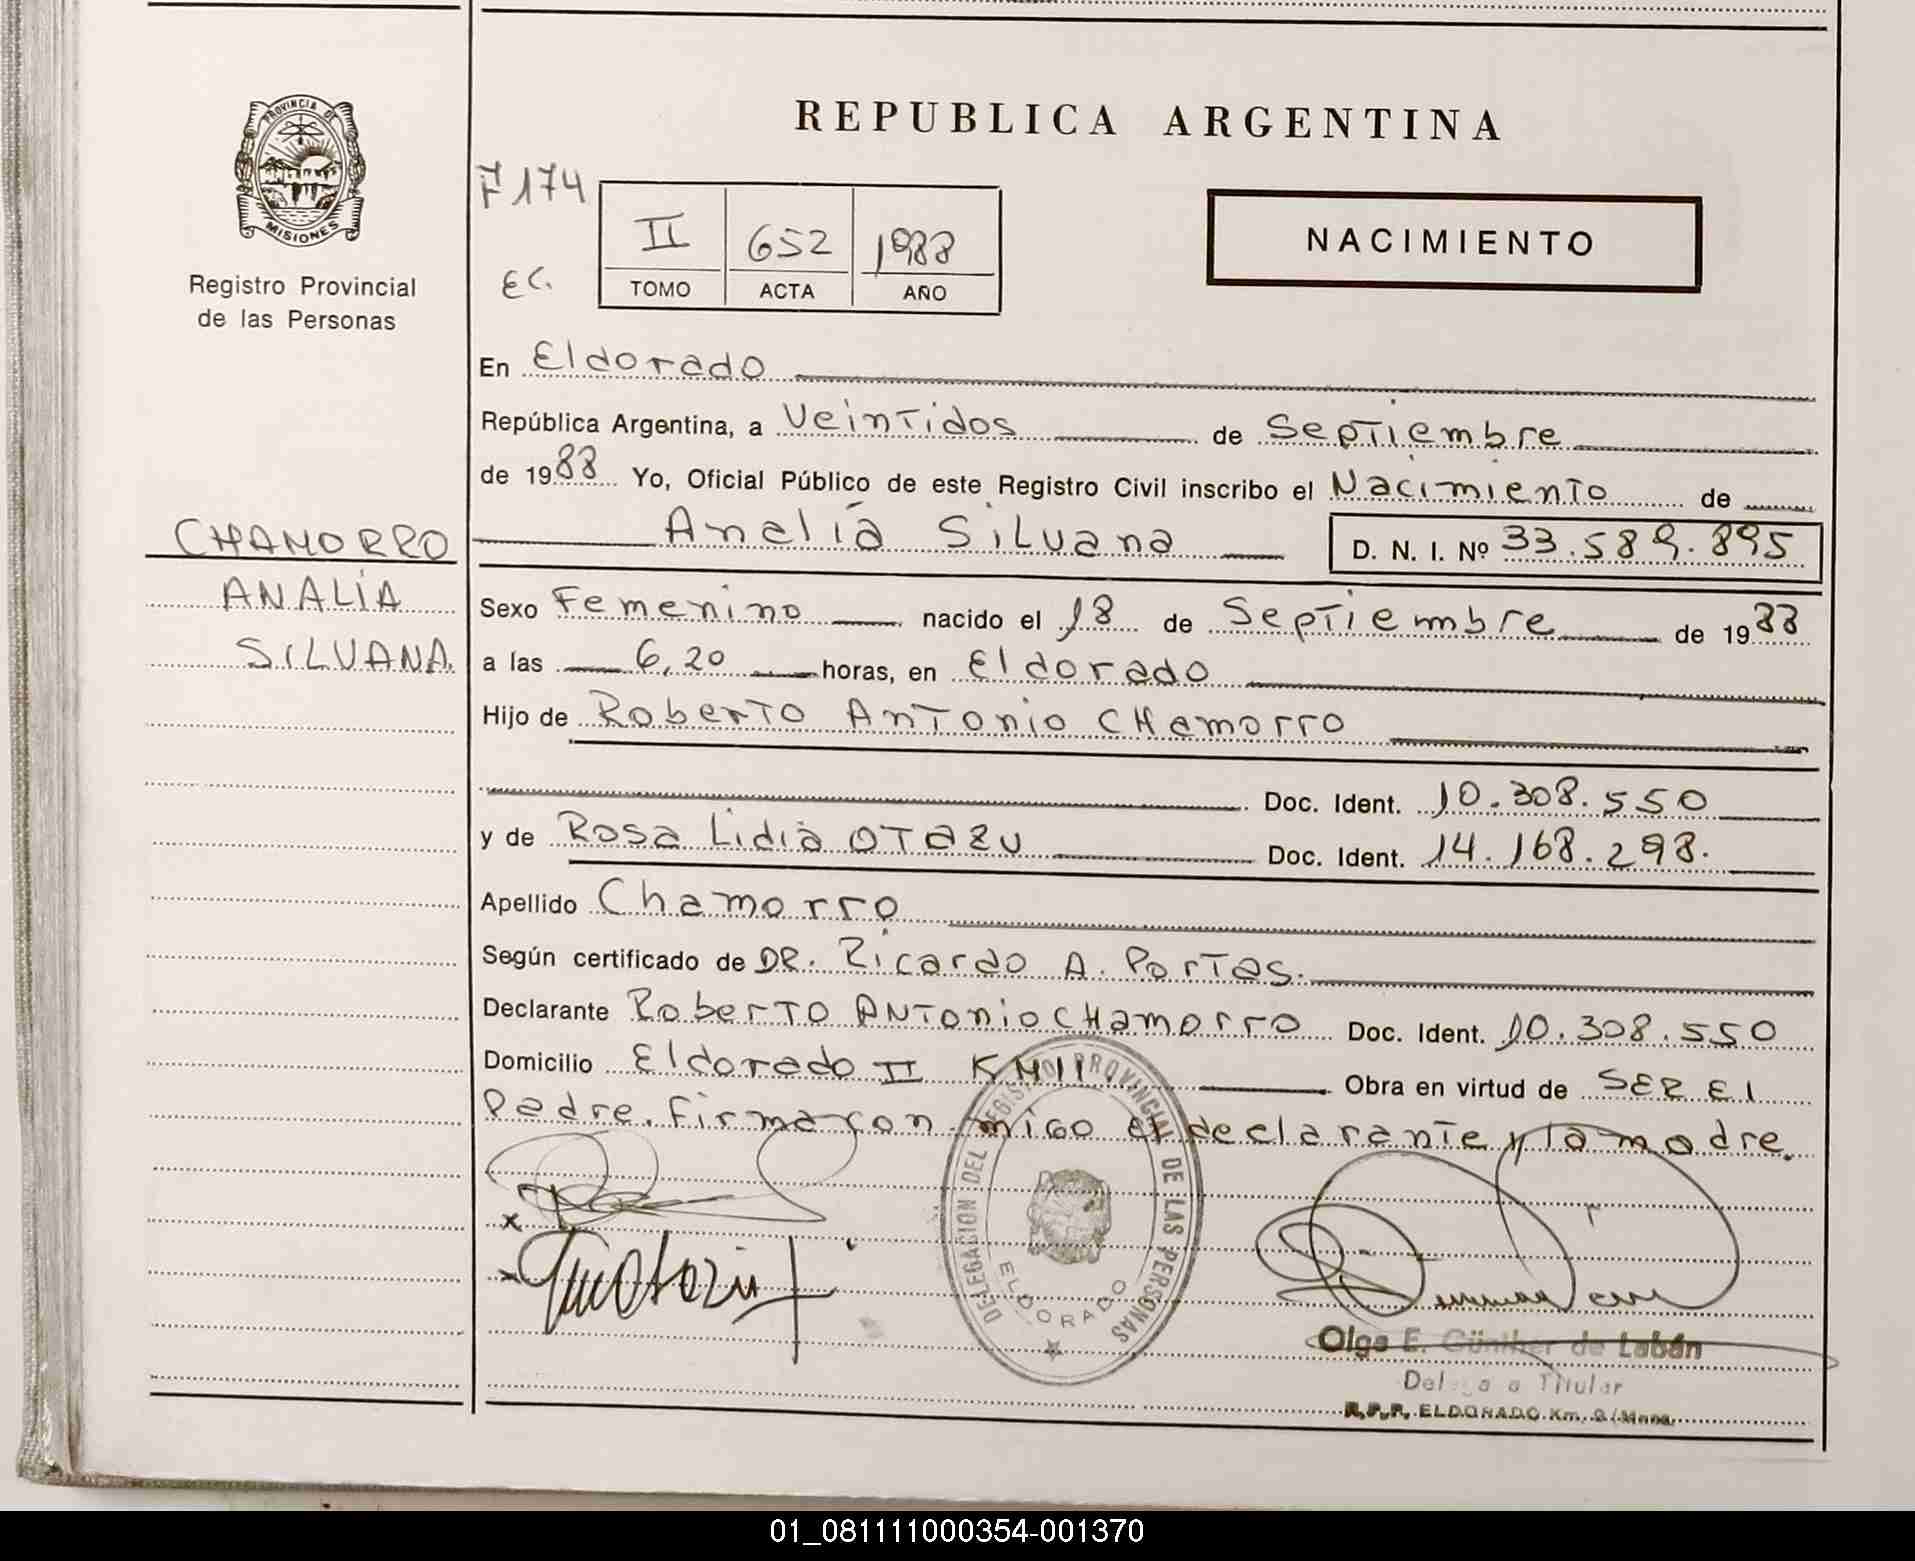 PROVINCIA DE
MISIONES
Registro Provincial
de las Personas
REPUBLICA ARGENTINA
F 174
EC.
II 652 1988
TOMO ACTA AÑO
NACIMIENTO
En Eldorado
República Argentina, a Veintidos de Septiembre
de 1988 Yo, Oficial Público de este Registro Civil inscribo el Nacimiento de
CHAMORRO
ANALÍA
SILVANA.
Analía Silvana D. N. I. Nº 33.589.895
Sexo Femenino nacido el 18 de Septiembre de 1988
a las 6,20 horas, en Eldorado
Hijo de Roberto Antonio CHamorro
Doc. Ident. 10.308.550
y de Rosa Lidia OTAZU Doc. Ident. 14.168.298.
Apellido Chamorro
Según certificado de DR. Ricardo A. Portas.
Declarante Roberto Antonio CHamorro Doc. Ident. 10.308.550
Domicilio Eldorado II KM 11 Obra en virtud de SER El
Padre. Firma con migo El declarante y la madre.
DELEGACION DEL REGISTRO PROVINCIAL DE LAS PERSONAS
ELDORADO
x
x
Olga E. Günther de Labán
Delegada Titular
R.P.P. ELDORADO Km. 9 (Mnes.
01_081111000354-001370